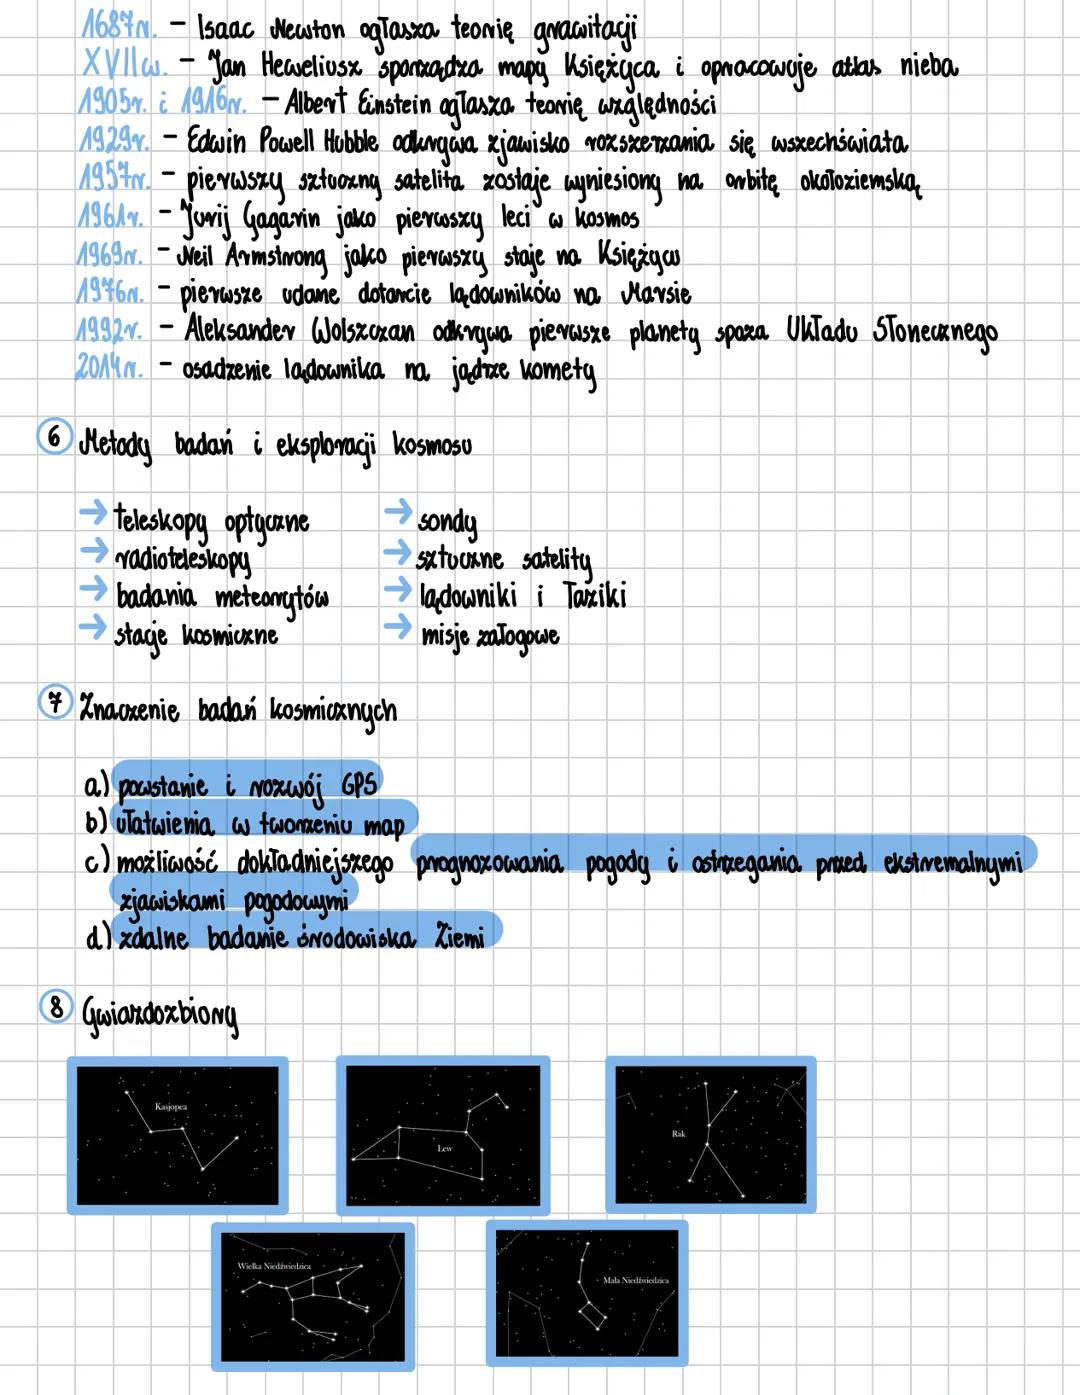 1687r. - Isaac Newton ogłasza teorię grawitacji
XVIIw. - Jan Heweliusz sporządza mapy Księżyca i opracowuje atlas nieba
1905r. i 1916r. - Albert Einstein ogłasza teorię względności
1929r. - Edwin Powell Hubble odkrywa zjawisko rozszerzania się wszechświata
1957r. - pierwszy sztuczny satelita zostaje wyniesiony na orbitę okołoziemską
1961r. - Jurij Gagarin jako pierwszy leci w kosmos
1969r. - Neil Armstrong jako pierwszy staje na Księżycu
1976r. - pierwsze udane dotarcie lądowników na Marsie
1992r. - Aleksander Wolszczan odkrywa pierwsze planety spoza Układu Słonecznego
2014r. - osadzenie lądownika na jądrze komety
6 Metody badań i eksploracji kosmosu
→ teleskopy optyczne → sondy
→ radioteleskopy → sztuczne satelity
→ badania meteorytów → lądowniki i łaziki
→ stacje kosmiczne → misje załogowe
7 Znaczenie badań kosmicznych
a) powstanie i rozwój GPS
b) ułatwienia w tworzeniu map
c) możliwość dokładniejszego prognozowania pogody i ostrzegania przed ekstremalnymi
zjawiskami pogodowymi
d) zdalne badanie środowiska Ziemi
8 Gwiazdozbiory
Kasjopea
Lew
Rak
Wielka Niedźwiedzica
Mała Niedźwiedzica